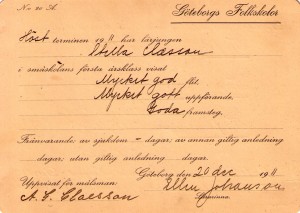 No 20 A.
Göteborgs Folkskolor
Höst terminen 1911 har lärjungen
Stella Claesson
i småskolans första årsklass visat
Mycket god flit,
Mycket gott uppförande,
Goda framsteg.
Frånvarande av sjukdom – dagar; av annan giltig anledning
dagar; utan giltig anledning dagar.
Göteborg den 20 dec 1911
Ellen Johansson
Lärarinna.
Uppvisat för målsman
A. G. Claesson